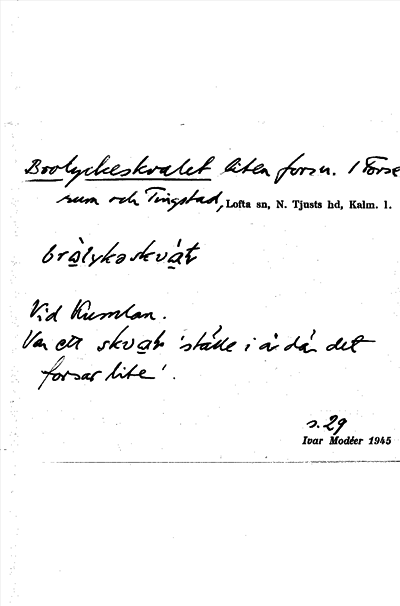 Brolyckeskvalet liten forsn. i Forse
rum och Tingstad, Lofta sn, N. Tjusts hd, Kalm. l.
Vid Kumlan.
Var ett ställe i å där det
forsar lite'.
s. 29
Ivar Modéer 1945